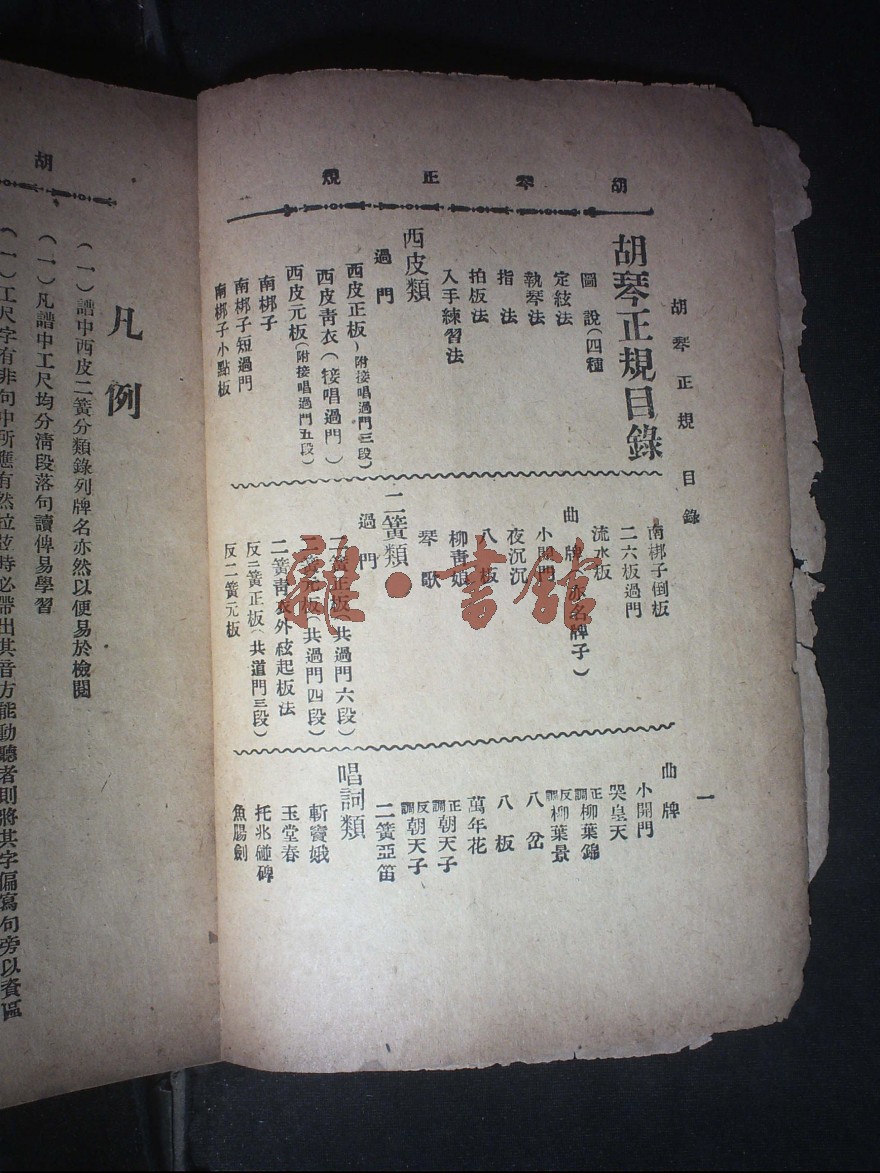 胡琴正規
胡琴正規 目錄
一
胡琴正規目錄
圖說(四種
定絃法
執琴法
指法
拍板法
入手練習法
西皮類
過門
西皮正板)附接唱過門三段)
西皮靑衣(接唱過門)
西皮元板(附接唱過門五段)
南梆子
南梆子短過門
南梆子小點板
南梆子倒板
二六板過門
流水板
曲牌(亦名牌子)
小開門
夜沉沉
八板
柳靑娘
琴歌
二簧類
過門
二簧正板(共過門六段)
二簧元板(共過門四段)
二簧靑衣外絃起板法
反二簧正板(共道門三段)
反二簧元板
曲牌
小開門
哭皇天
正調柳葉錦
反調柳葉景
八岔
八板
萬年花
正調朝天子
反調朝天子
二簧亞笛
唱詞類
斬竇娥
玉堂春
托兆碰碑
魚腸劍
胡
凡例
(一)譜中西皮二簧分類錄列牌名亦然以便易於檢閱
(一)凡譜中工尺均分淸段落句讀俾易學習
(一)工尺字有非句中所應有然拉時必帶出其音方能動聽者則將其字偏寫句旁以資區
雜·書館